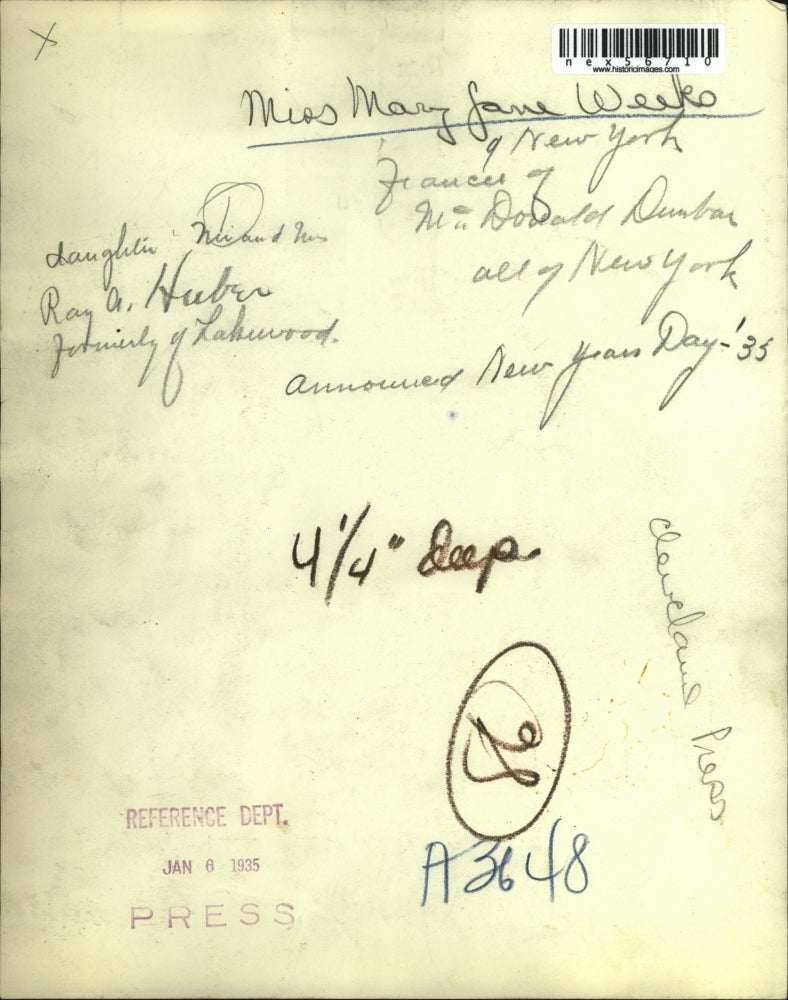 nex56710
www.historicimages.com
Miss Mary Jane Weeks
of New York
Francee of
Mr. Donald Dunbar
all of New York
daughter Mr and Mrs
Ray A. Huber
formerly of Lakewood.
announced New Years Day - '35
4 1/4" deep
Cleveland Press
REFERENCE DEPT.
JAN 6 1935
PRESS
A3648